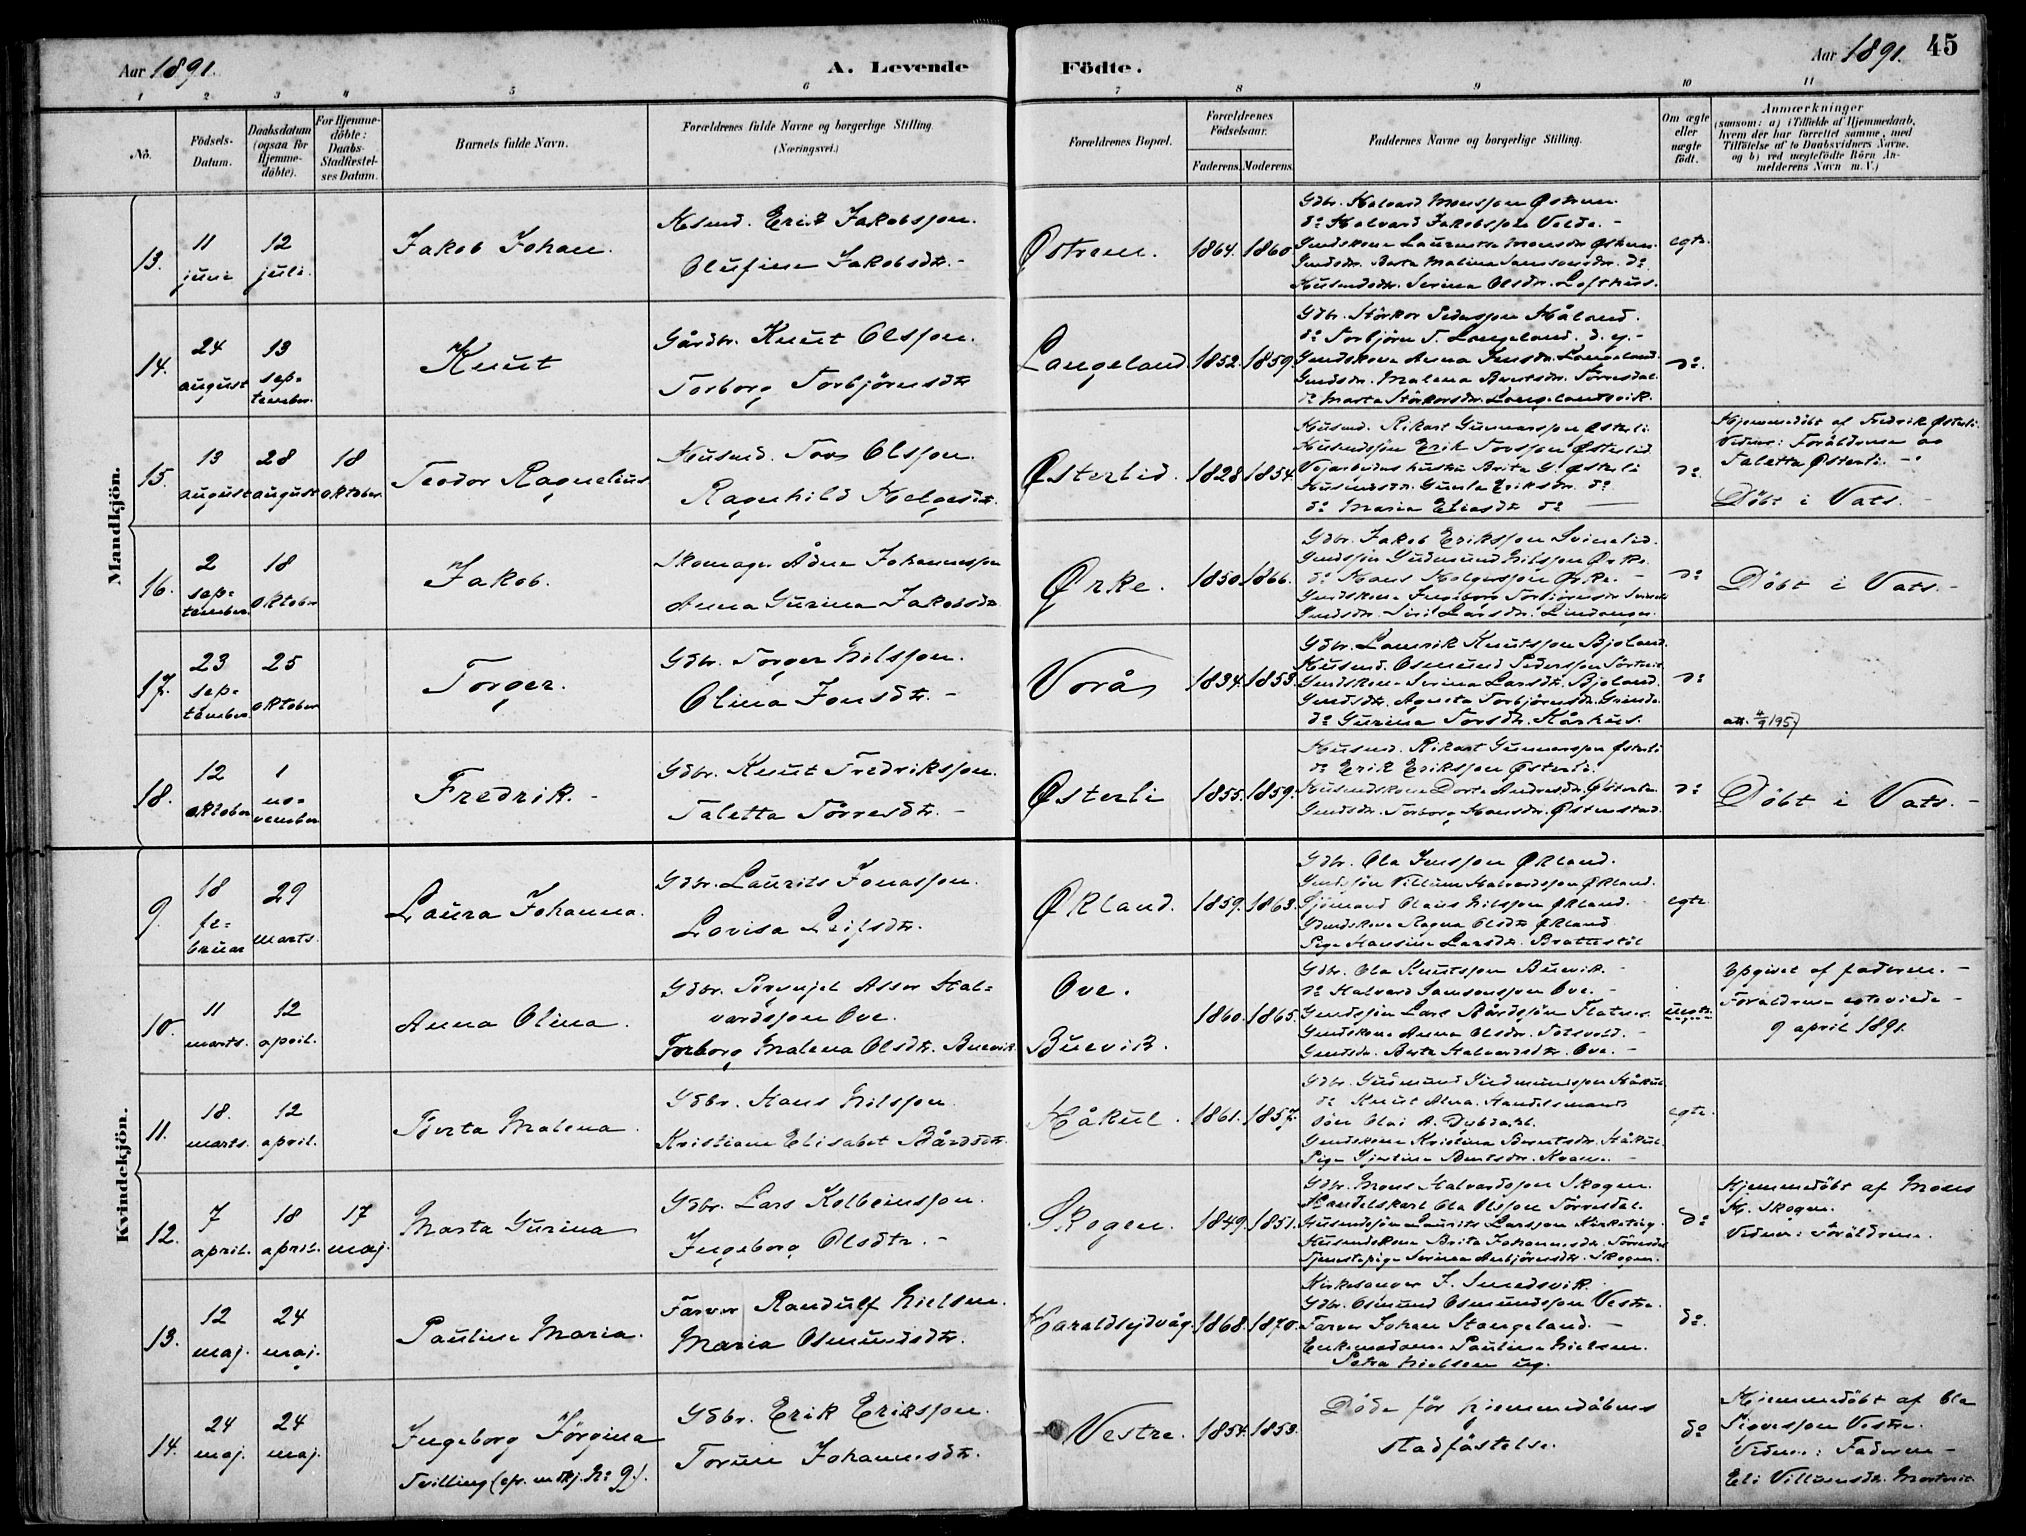 Aar 1891.
A. Levende Födte.
Aar 1891. 45
1 2 3 4 5 6 7 8 9 10 11
No.
Födsels-Datum.
Daabsdatum (ogsaa for Hjemme-döbte).
For Hjemme-döbte: Daabs-Stadfæstel-ses Datum.
Barnets fulde Navn.
Forældrenes fulde Navne og borgerlige Stilling (Næringsvei.)
Forældrenes Bopæl.
Forældrenes Födselsaar.
Faderens. Moderens.
Faddernes Navne og borgerlige Stilling.
Om ægte eller uægte födt.
Anmærkninger
(saasom: a) i Tilfælde af Hjemmedaab,
hvem der har forrettet samme, med
Tilföielse af to Daabsvidners Navne.
og b) ved uægtefödte Börn An-
melderens Navn m.V.)
Mandkjön.
13. 11 juni 12 juli. Jakob Johan.
Husmd. Erik Jakobsson.
Olufine Jakobsdtr. -
Østrem. 1864. 1860
Gdbr. Halvard Monsson Østrem.
do Halvard Jakobsson Valde. -
Gmdskone Laurentse Monsdr. Østrem.
Gmdsdr. Berta Malina Samsonsdr. do
Husmdsdtr. Serina Olsdr. Lofthus.
egte.
14. 24 august 13 sep-tember. Knut
Gårdbr. Knut Olsson.
Torborg Torbjörnsdtr
Langeland 1852. 1859.
Gdbr. Störkor Pedersson Håland.
do Torbjörn T. Langeland. d. y. -
Gmdskone Anna Jensdr. Langeland.
Gmdsdr. Malena Berntsdr. Törresdal.
do Marta Störkorsdr. Langelandsvik.
do.
15. 13 august 28 august 18 oktober. Teodor Ragnelius
Husmd. Tors Olsson.
Ragnhild Helgesdtr.
Østerlid. 1828 1854.
Husmd. Rikart Gunnarsson Østerli
Husmdssön Erik Torsson Østerlid
Vejarbeiders hustru Brita G. Østerli
Husmdsdr. Gunla Eriksdr. do
do Maria Eliasdtr do
do
Hjemmedöbt af Fredrik Østerli.
Vidner: Foräldrene og
Taletta Østerli. -
Döbt i Vats. -
16. 2 sep-tember 18 oktober Jakob.
Skomager Ådne Johannesson
Anna Gurina Jakobsdtr
Ørke. 1850. 1866.
Gdbr. Jakob Eriksson Svinalid.
Gmdssön Gudmund Nilsson Ørke.
do Hans Holgersson Ørke. -
Gmdskone Ingeborg Torbjörnsdr
Gmdsdr. Siri Larsdr. Lindanger.
do
Döbt i Vats. -
17. 23 sep-tember 25 oktober Torger.
Gdbr. Torger Nilsson.
Olina Jonsdtr. -
Vorås 1834. 1853.
Gdbr. Lamrik Knutsson Bjoland.
Husmd. Osmund Pedersson
Gmdskone Serina Larsdtr. Bjoland.
Gmdsdtr. Agneta Torbjörnsdr. Grinde.
do Gurina Torsdtr. Kårhus.
do
att. 4/9 1957
18. 12 oktober 1 no-vember Fredrik. -
Gdbr. Knut Fredriksson.
Taletta Törresdtr. -
Østerli 1855. 1859.
Husmd. Rikart Gunnarsson Østerli
do Erik Eriksson Østerli.
Husmdskone Dorte Andersdr. Østerli.
Gmdsdr. Torborg Hansdr. Østenstad.
do
Döbt i Vats. -
Kvindekjön.
9. 18 fe-bruar 29 marts. Laura Johanna.
Gdbr. Laurits Jonasson.
Lovisa Leifsdtr.
Økland. 1859. 1863.
Gdbr. Ola Jensson Økland.
Gmdssön Villum Halvardsson Økland.
Sjömand Olaus Nilsson Økland. -
Gmdskone Ragna Olsdtr Økland
Pige Hansine Larsdtr. Brattestöl
egte.
10. 11 marts. 12 april. Anna Olina.
Gdbr. Assor Hal-
vardsson Ove.
Torborg Malena Olsdtr. Buevik.
Ove.
Buevik.
1860. 1865.
Gdbr. Ola Knutsson Buevik. -
do Halvard Samsonsson Ove. -
Gmdssön Lars Bårdssön Flatnes.
Gmdskone Anna Olsdr.
Gmdsdr. Berta Halvardsdtr. Ove. -
uegte.
Opgivet af faderen. -
Foräldrene egteviede -
9 april 1891.
11. 18. marts. 12 april. Berta Malena.
Gdbr. Hans Nilsson.
Kristiane Elisabet Bårdsdtr.
Håkul. 1861. 1857.
Gdbr. Gudmund Gudmundsson Håkul
do Knut Alne. Handelsmands
sön Olai A. Dybdahl.
Gmdskone Kristina Berentsdr. Håkul.
Pige Gjertine Berntsdr. Kvame. -
egte.
12. 7 april. 18 april. 17 maj. Marta Gurina
Gdbr. Lars Kolbeinsson.
Ingeborg Olsdtr. -
Skogen. 1849. 1851.
Gdbr. Mons Halvardsson Skogen.
Handelskarl Ola Olsson Törresdal.
Husmdssön Laurits Larsson
Husmdskone Brita Johannesdr. Törresdal
Tjenestepige Serina Anbjörnsdtr. Skogen.
do
Hjemmedöbt af Mons
H. Skogen.
Vidner: Foräldrene.
13. 12 maj. 24 maj. Pauline Maria.
Farver Randulf Nielsen.
Maria Osmundsdtr.
Haraldsejdvåg. 1868. 1870.
Kirkesanger J. Smedsvik.
Gdbr. Osmund Osmundsson Vestre.
Farver Johan Stangeland. -
Enkemadame Pauline Nielsen.
Petra Nielsen ug.
do.
14. 24 maj. 24 maj. Ingeborg Jörgina
Tvilling (cfr. mdkj. No 9).
Gdbr. Erik Eriksson.
Torine Johannesdtr.
Vestre. 1854. 1853.
Döde för hjemmedåbens
stadfästelse.
do
Hjemmedöbt af Ola
Siversson Vestre.
Vidner: Faderen -
Eli Villumsdtr.